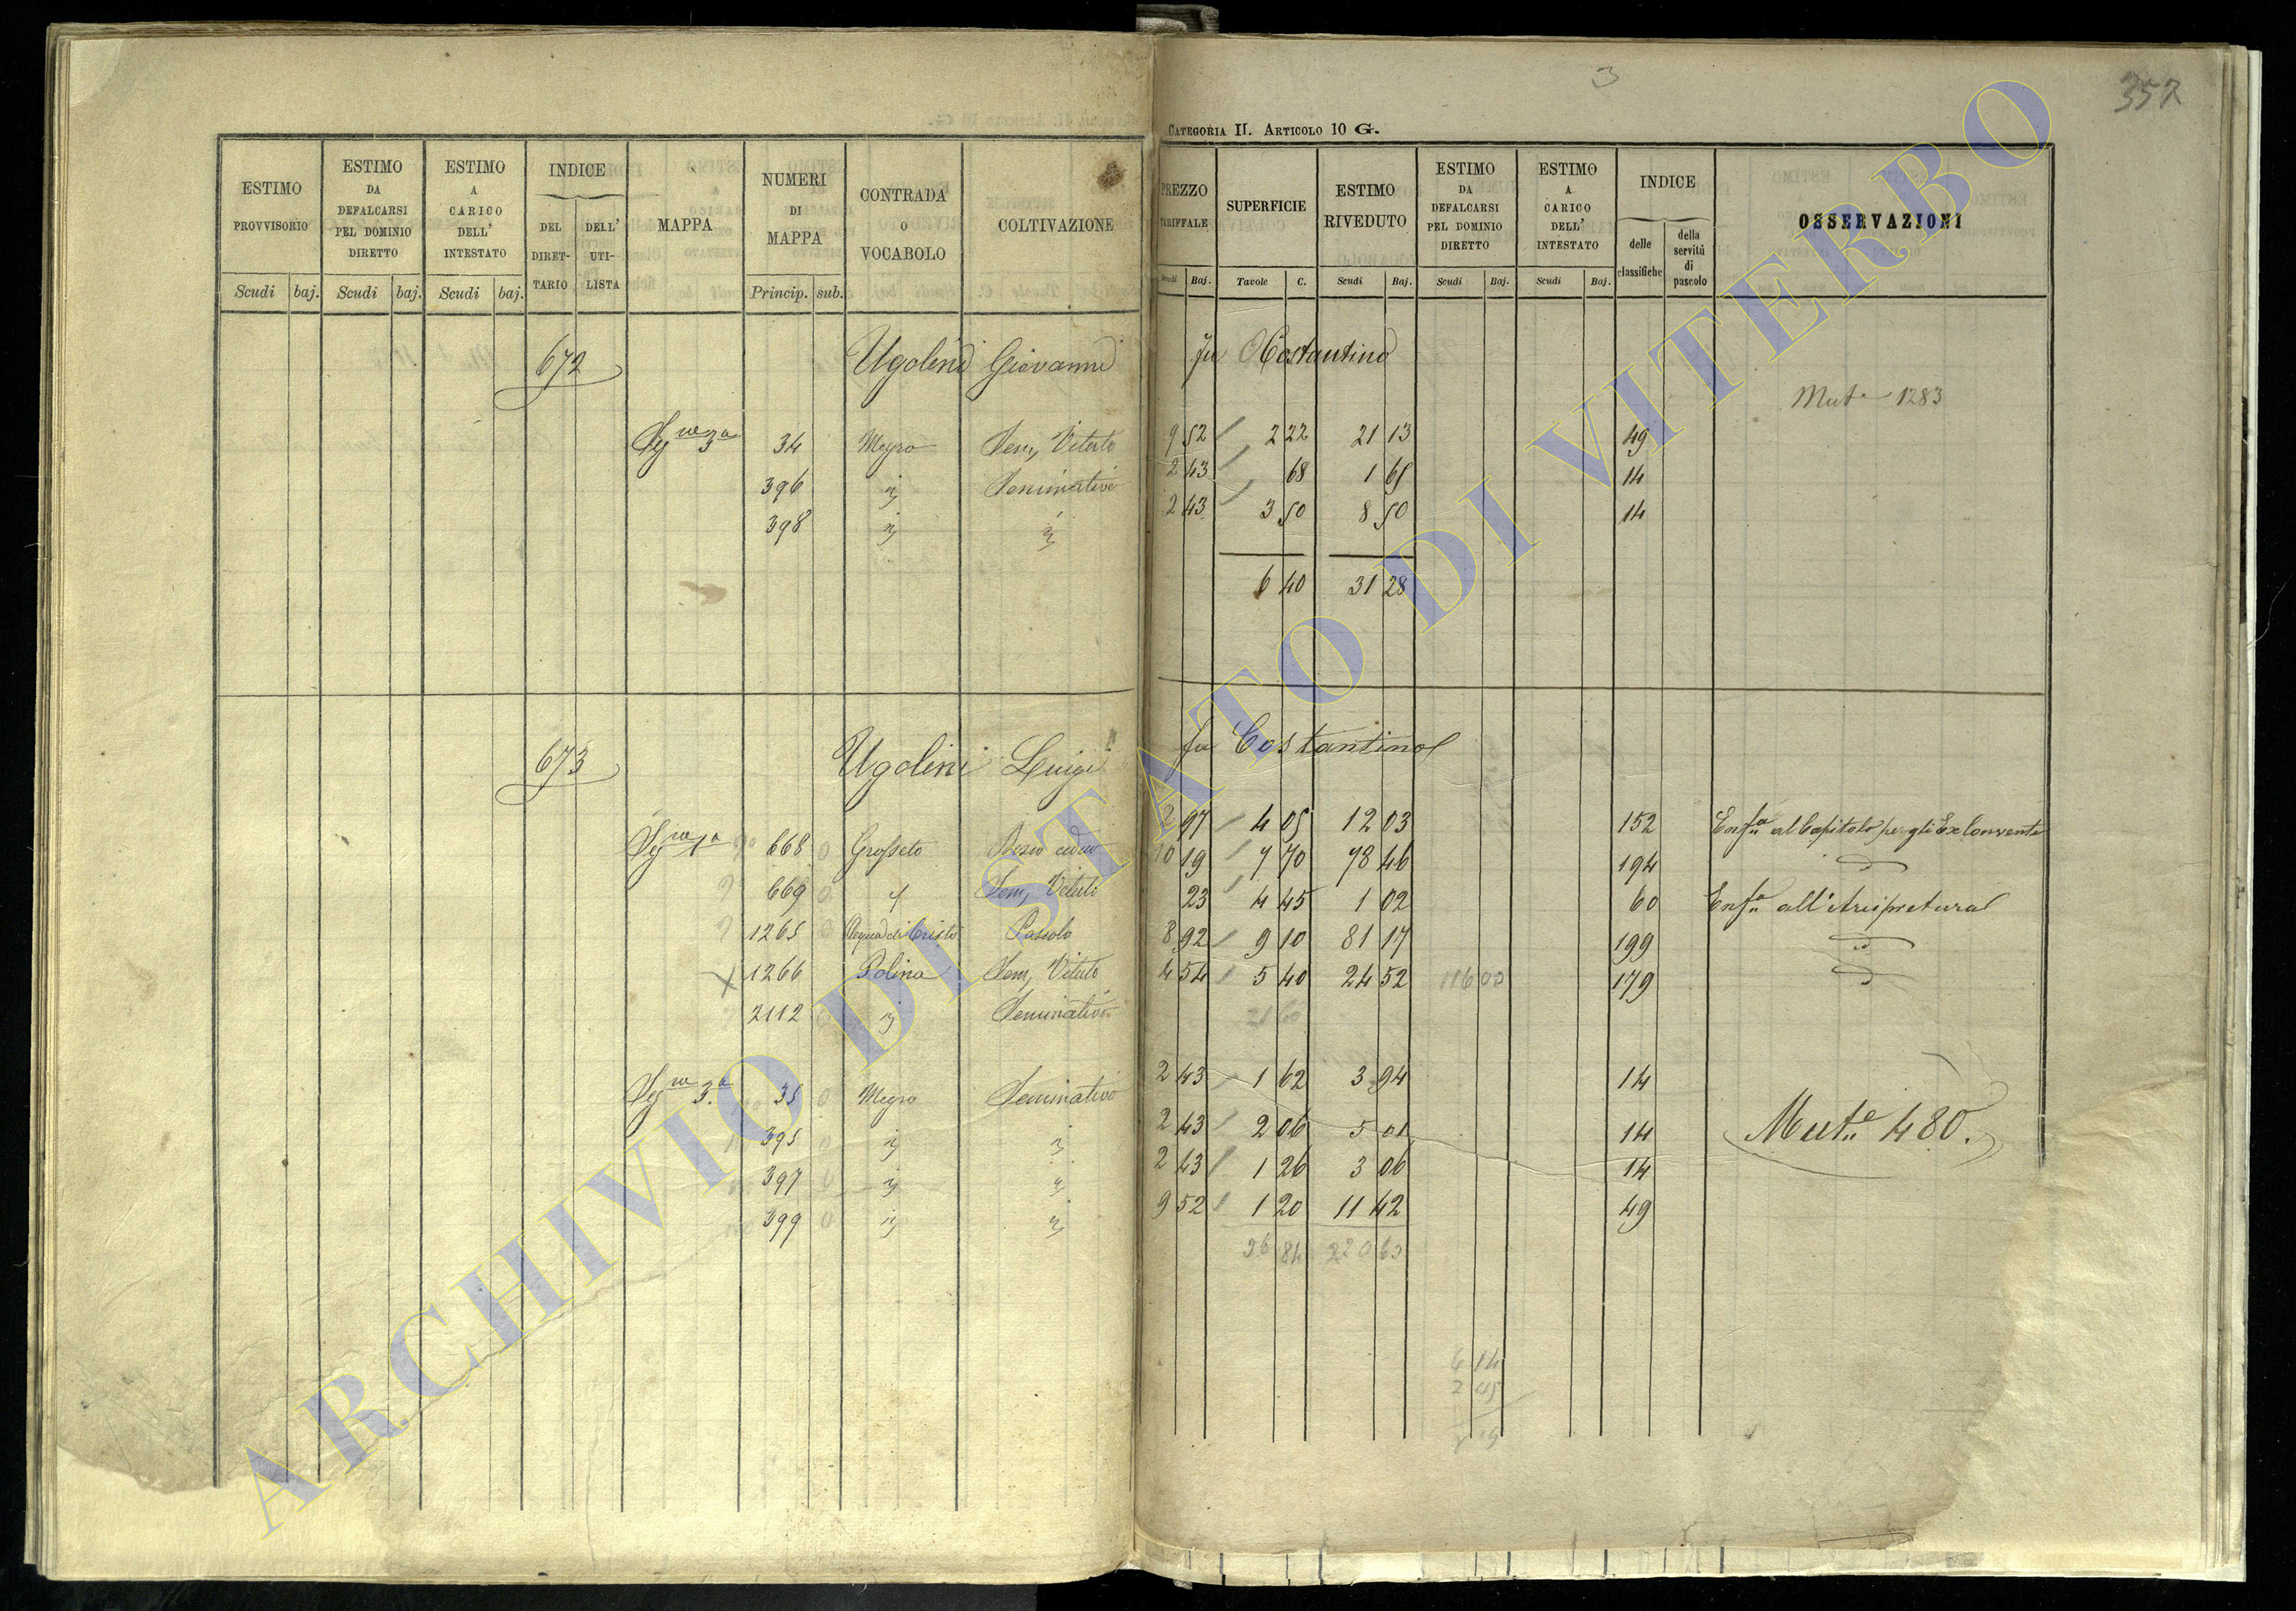 3
357
CATEGORIA II. ARTICOLO 10 G.
ESTIMO PROVVISORIO Scudi baj.
ESTIMO DA DEFALCARSI PEL DOMINIO DIRETTO Scudi baj.
ESTIMO A CARICO DELL' INTESTATO Scudi baj.
INDICE DEL DIRETTARIO DELL' UTILISTA
MAPPA
NUMERI DI MAPPA Princip. sub.
CONTRADA O VOCABOLO
COLTIVAZIONE
PREZZO TARIFFALE Scudi Baj.
SUPERFICIE Tavole C.
ESTIMO RIVEDUTO Scudi Baj.
ESTIMO DA DEFALCARSI PEL DOMINIO DIRETTO Scudi Baj.
ESTIMO A CARICO DELL' INTESTATO Scudi Baj.
INDICE delle classifiche della servitù di pascolo
OSSERVAZIONI
672 Ugolini Giovanni fu Costantino
Mut.e 1283
Seg.ne 3a 34 Megro Sem, Vitato 9 52 2 22 21 13 49
396 id Seminativo 2 43 68 1 65 14
398 id id 2 43 3 50 8 50 14
6 40 31 28
673 Ugolini Luigi fu Costantino
Seg.ne 1a 668 Grosseto Bosco ceduo 2 97 4 05 12 03 152 Enf.a al Capitolo pe gli Ex Conventi
669 Sem, Vitato 10 19 7 70 78 46 194 id
1265 Acqua di Cristo Pascolo 23 4 45 1 02 60 Enf.a all'Arcipretura
1266 Polina Sem, Vitato 8 92 9 10 81 17 199 id
2112 id Seminativo 4 54 5 40 24 52 116 00 179 id
Seg.ne 3.a 35 Megro Seminativo 2 43 1 62 3 94 14
395 id id 2 43 2 06 5 01 14 Mut.e 480.
397 id id 2 43 1 26 3 06 14
399 id id 9 52 1 20 11 42 49
36 84 220 63
6 14
ARCHIVIO DI STATO DI VITERBO